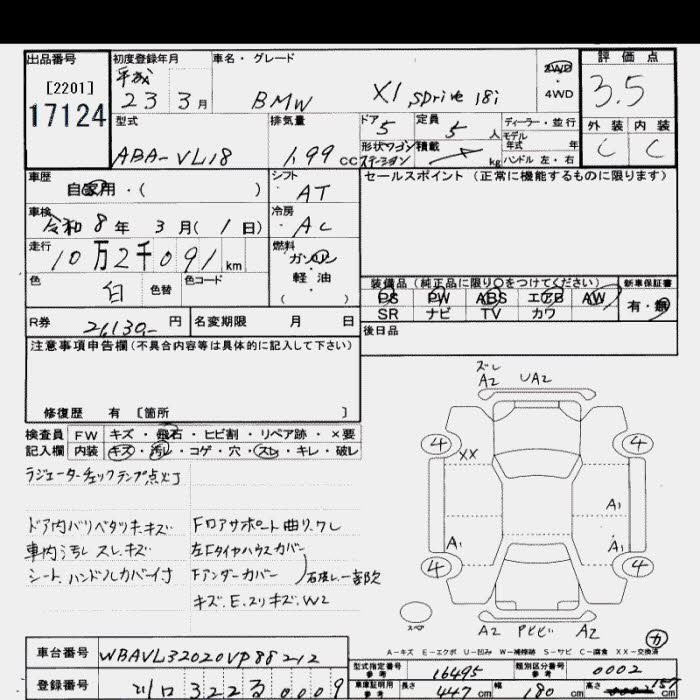 出品番号
[2201]
17124
初度登録年月
平成
23 3月
車名・グレード
BMW X1 sDrive 18i
2WD
・
4WD
評価点
3.5
外装 内装
C C
型式
ABA-VL18
排気量
1.99 cc
ドア
5
定員
5人
形状 ワゴン
ステーション
積載
kg
ディーラー・並行
モデル
年式 年
ハンドル 左・右
車歴
自家用・( )
シフト
AT
セールスポイント (正常に機能するものに限ります)
車検
令和 8年 3月(1日)
冷房
AC
走行
10万2千091 km
燃料
ガソリン
・
軽油
( )
色
白
色替
色コード
装備品(純正品に限り○をつけてください)
新車保証書
PS PW ABS エアB AW
SR ナビ TV カワ
有・無
R券
26,130- 円
名変期限 月 日
後日品
注意事項申告欄(不具合内容等は具体的に記入して下さい)
修復歴 有 [箇所 ]
検査員 FW キズ・飛石・ヒビ割・リペア跡・×要
記入欄 内装 キズ・汚レ・コゲ・穴・スレ・キレ・破レ
ラジエーターチェックランプ点灯
ドア内バリベタツキ、キズ
車内汚レ スレ、キズ
シート、ハンドルカバー付
Fロアサポート曲リ、ワレ
左Fタイヤハウスカバー
Fアンダーカバー
石渡し、一部欠
キズ、E、スリキズ、W2
ズレ
A2 UA2
4 4
XX
A1
A1 A1
4 4
スペア
A2 P ヒビ A2
カ
A-キズ E-エクボ U-凹み W-補修跡 S-サビ C-腐食 XX-交換済
車台番号
WBAVL32020VP88212
登録番号
川口 322 3 0009
型式指定番号
参考
16495
類別区分番号
参考
0002
車庫証明用
参考
長さ 447 cm 幅 180 cm 高さ 155 cm